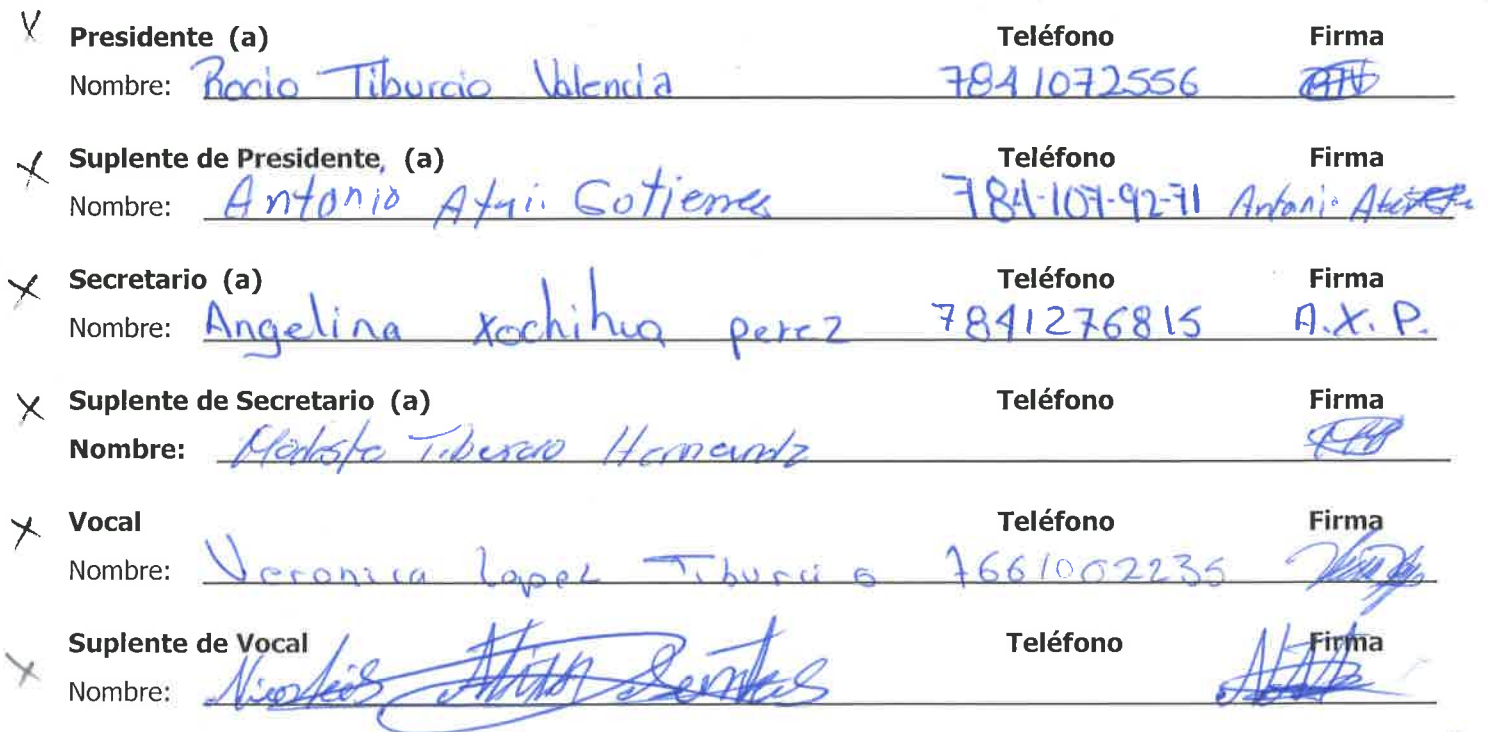 Presidente (a) Teléfono Firma
Nombre: Rocio Tiburcio Valencia 7841072556
Suplente de Presidente, (a) Teléfono Firma
Nombre: Antonio Gotierres 784-107-92-71 Antonio
Secretario (a) Teléfono Firma
Nombre: Angelina xochihua perez 7841276815 A.X.P.
Suplente de Secretario (a) Teléfono Firma
Nombre: Modesto Tiburcio
Vocal Teléfono Firma
Nombre: Veronica Lopez Tiburcio 7661002235
Suplente de Vocal Teléfono Firma
Nombre: Nicolás